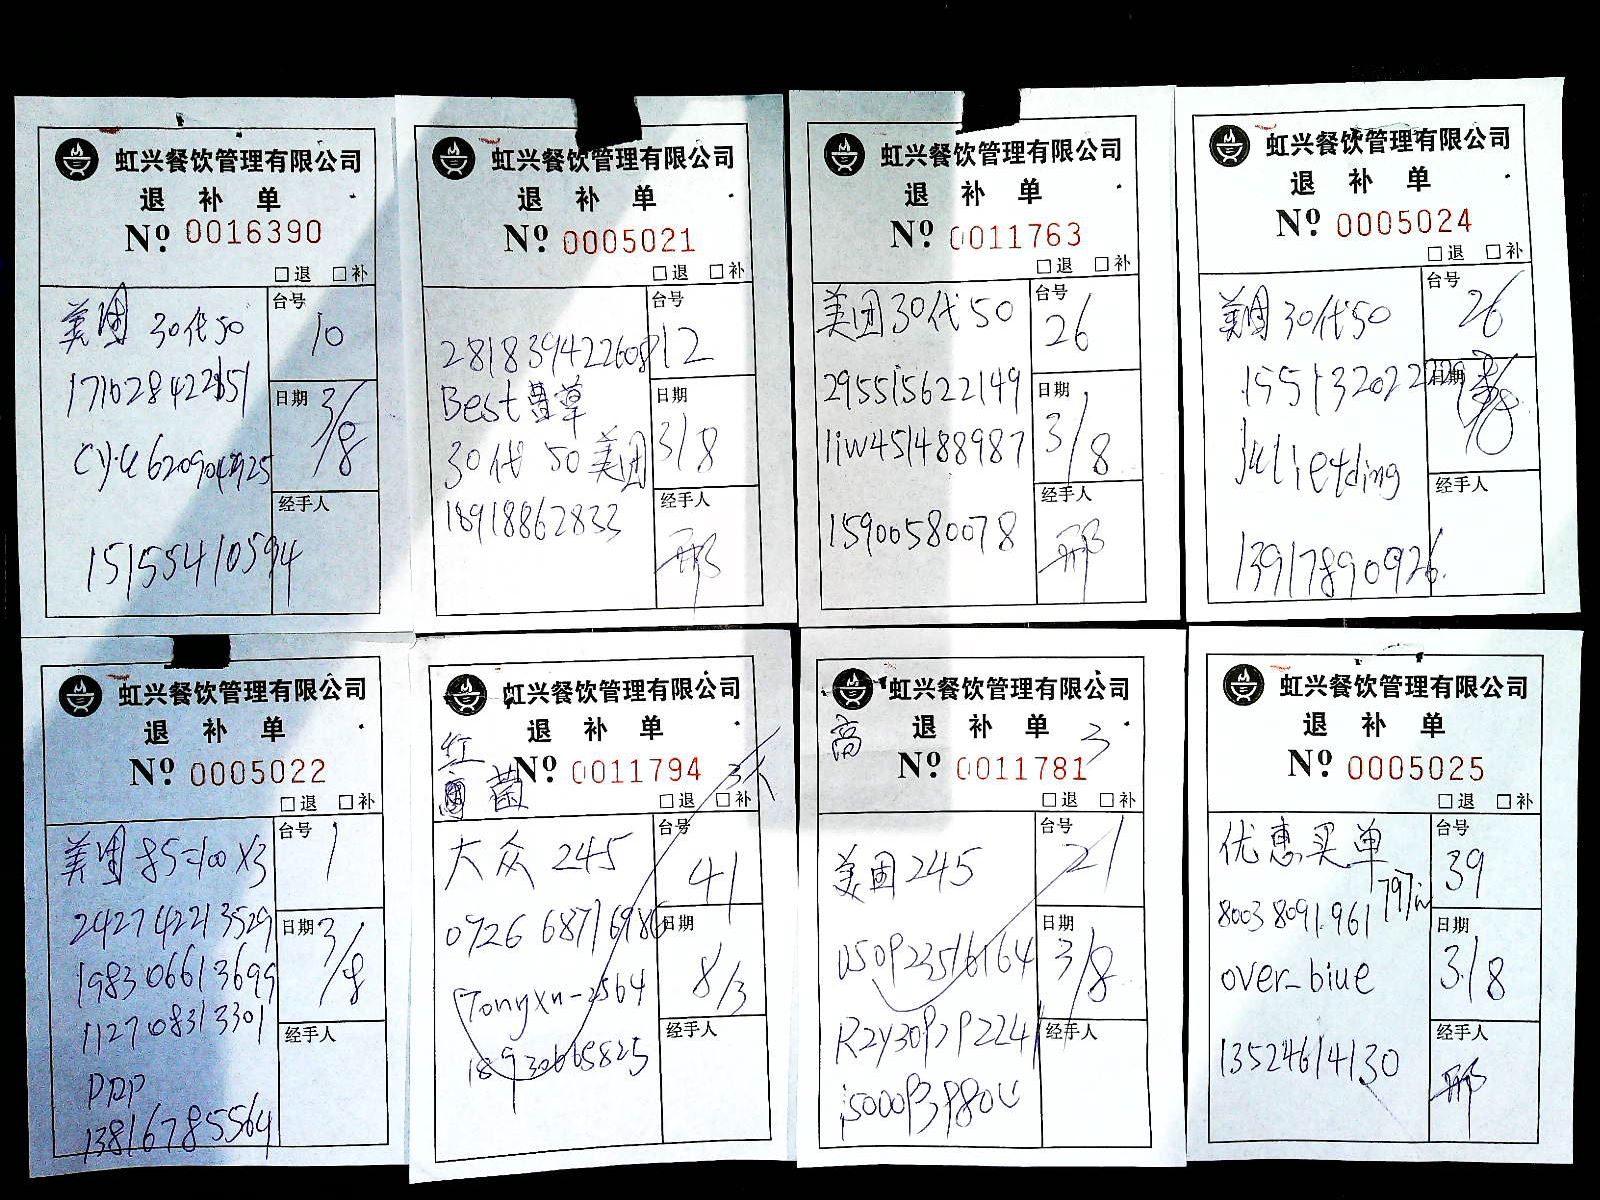 虹兴餐饮管理有限公司
退 补 单
Nº 0016390
□退 □补
美团 30代50
台号
10
171028422851
日期
3/8
经手人
15155410594
虹兴餐饮管理有限公司
退 补 单
Nº 0005021
□退 □补
台号
12
281839422608
Best
日期
3/8
30代50美团
18918862833
经手人
邢
虹兴餐饮管理有限公司
退 补 单
Nº 0011763
□退 □补
美团30代50
台号
26
295515622149
日期
3/8
liw451488987
经手人
15900580078
邢
虹兴餐饮管理有限公司
退 补 单
Nº 0005024
□退 □补
美团30代50
台号
26
日期
Julietding
经手人
13917890926
虹兴餐饮管理有限公司
退 补 单
Nº 0005022
□退 □补
美团85=100X3
台号
1
242742213529
日期
3/8
198306613699
112708313301
经手人
PDP
13816785564
虹兴餐饮管理有限公司
退 补 单
红
菌
Nº 0011794
□退 □补
大众 245
台号
41
0726 68716986
日期
8/3
Tonyxn-2564
经手人
18930665825
虹兴餐饮管理有限公司
退 补 单
高
3
Nº 0011781
□退 □补
美团245
台号
21
日期
3/8
经手人
虹兴餐饮管理有限公司
退 补 单
Nº 0005025
□退 □补
优惠买单
台号
39
797
80038091961
日期
3/8
over_biue
经手人
13524614130
邢